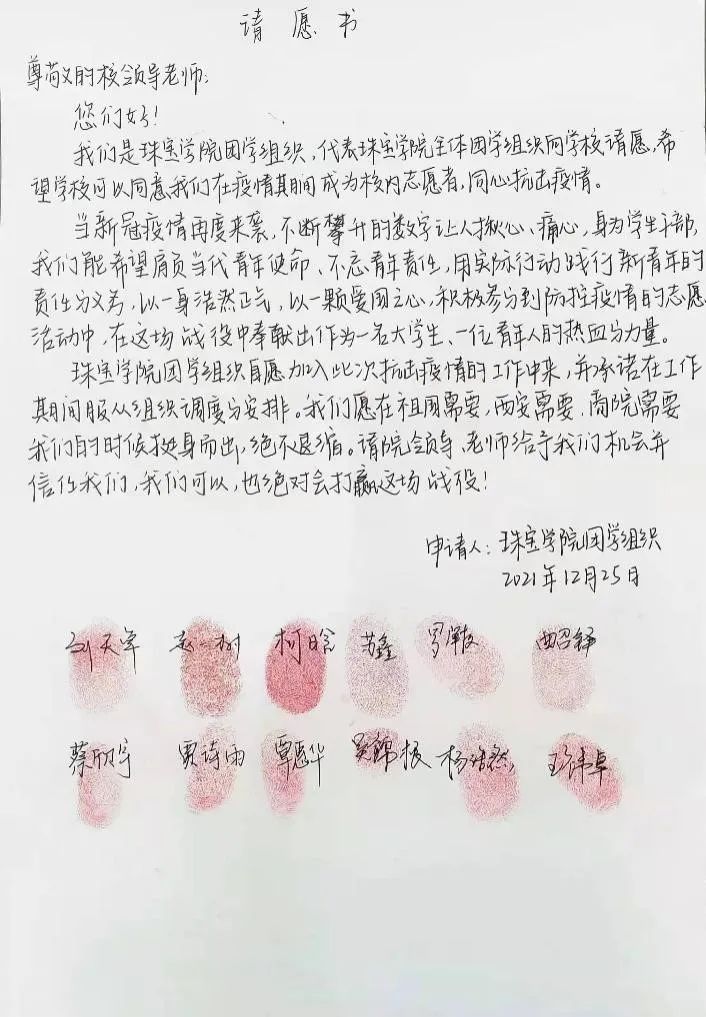 请愿书
尊敬的校领导老师:
您们好!
我们是珠宝学院团学组织,代表珠宝学院全体团学组织向学校请愿,希
望学校可以同意我们在疫情其间成为校内志愿者,同心抗击疫情。
当新冠疫情再度来袭,不断攀升的数字让人揪心、痛心,身为学生干部,
我们能希望肩负当代青年使命、不忘青年责任,用实际行动践行新青年的
责任与义务,以一身浩然正气,以一颗爱国之心,积极参与到防控疫情的志愿
活动中,在这场战役中奉献出作为一名大学生、一位青年人的热血与力量。
珠宝学院团学组织自愿加入此次抗击疫情的工作中来,并承诺在工作
期间服从组织调度与安排。我们愿在祖国需要,西安需要,商院需要
我们的时候挺身而出,绝不退缩。请院领导、老师给予我们机会并
信任我们,我们可以,也绝对会打赢这场战役!
申请人:珠宝学院团学组织
2021年12月25日
刘天宇 柯晗 苏鑫
蔡欣宇 贾诗雨 覃思华 吴锦根 杨浩然 王祎卓